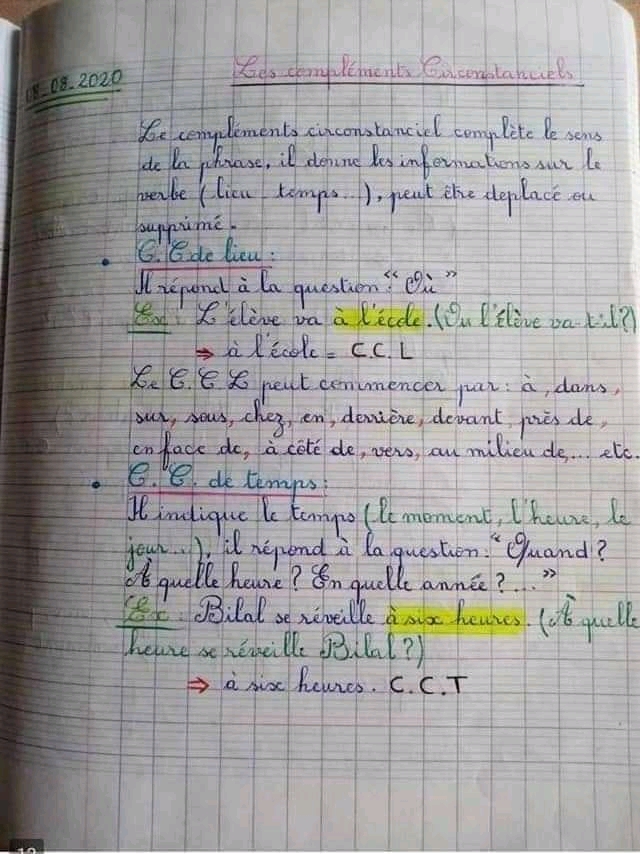 08.2020
Les compléments Circonstanciels
Le compléments circonstanciel complète le sens
de la phrase, il donne les informations sur le
verbe (lieu temps...), peut être deplacé ou
supprimé.
• C. C de lieu :
Il répond à la question : "Où"
Ex : L'élève va à l'école. (Ou l'élève va-t-il?)
⇒ à l'école = C.C.L
Le C. C L peut commencer par : à, dans,
sur, sous, chez, en, derrière, devant, près de,
en face de, à côté de, vers, au milieu de,... etc.
• C. C. de temps :
Il indique le temps (le moment, l'heure, le
jour...), il répond à la question : "Quand ?
À quelle heure ? En quelle année ?..."
Ex : Bilal se réveille à six heures. (À quelle
heure se réveille Bilal ?)
⇒ à six heures. C.C.T